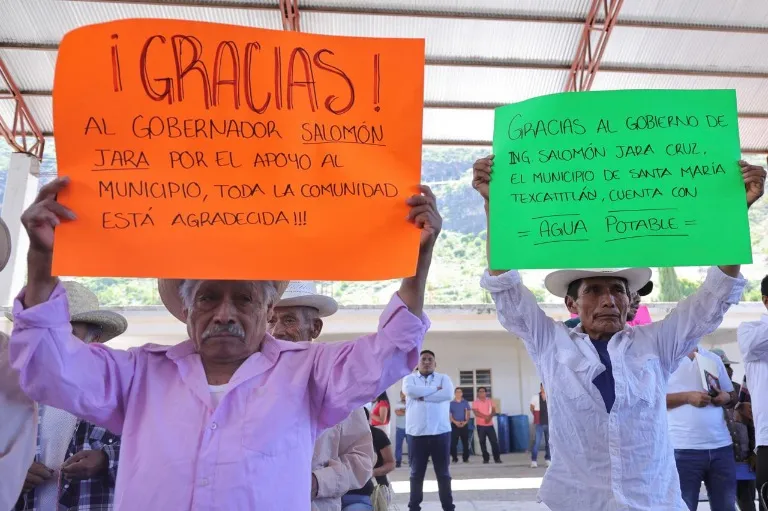 ¡GRACIAS!
AL GOBERNADOR SALOMÓN
JARA POR EL APOYO AL
MUNICIPIO, TODA LA COMUNIDAD
ESTÁ AGRADECIDA!!!
GRACIAS AL GOBIERNO DE
ING. SALOMÓN JARA CRUZ,
EL MUNICIPIO DE SANTA MARÍA
TEXCATITLÁN, CUENTA CON
= AGUA POTABLE =